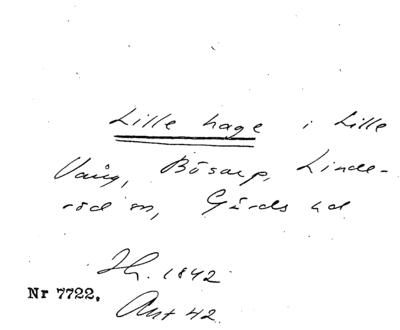 Lille hage i Lille
Vång, Bösarp, Linde-
röd sn, Gärds hd
Jh. 1842
Nr 7722.
Akt 42.